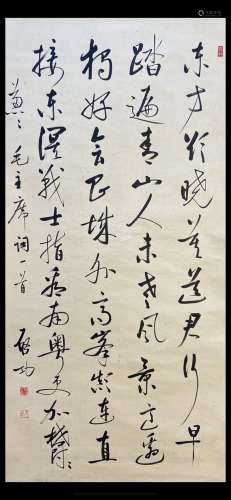 东方欲晓莫道君行早
踏遍青山人未老风景这边
独好会昌城外高峰颠连直
接东溟战士指看南粤更加郁々
葱々 毛主席词一首 启功